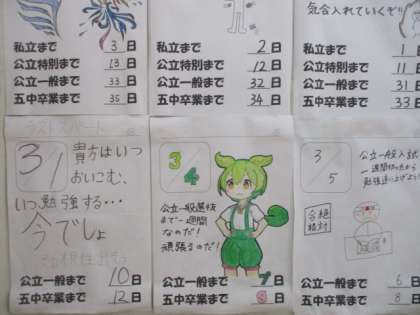 私立まで 3日
公立特別まで 13日
公立一般まで 33日
五中卒業まで 35日
私立まで 2日
公立特別まで 12日
公立一般まで 32日
五中卒業まで 34日
気合入れていくぞ!!
私立まで 1日
公立特別まで 11日
公立一般まで 31日
五中卒業まで 33日
ラストスパート
3/1
貴方はいつ
おいこむ、
いつ勉強する…
今でしょ
公立一般まで 10日
五中卒業まで 12日
3/4
公立一般選抜
まで一週間
なのだ!
頑張るのだ!
公立一般まで 7日
五中卒業まで 9日
3/5
公立一般入試
一週間切ったから
勉強追い上げよう!
合格
絶対
公立一般まで 6日
五中卒業まで 8日